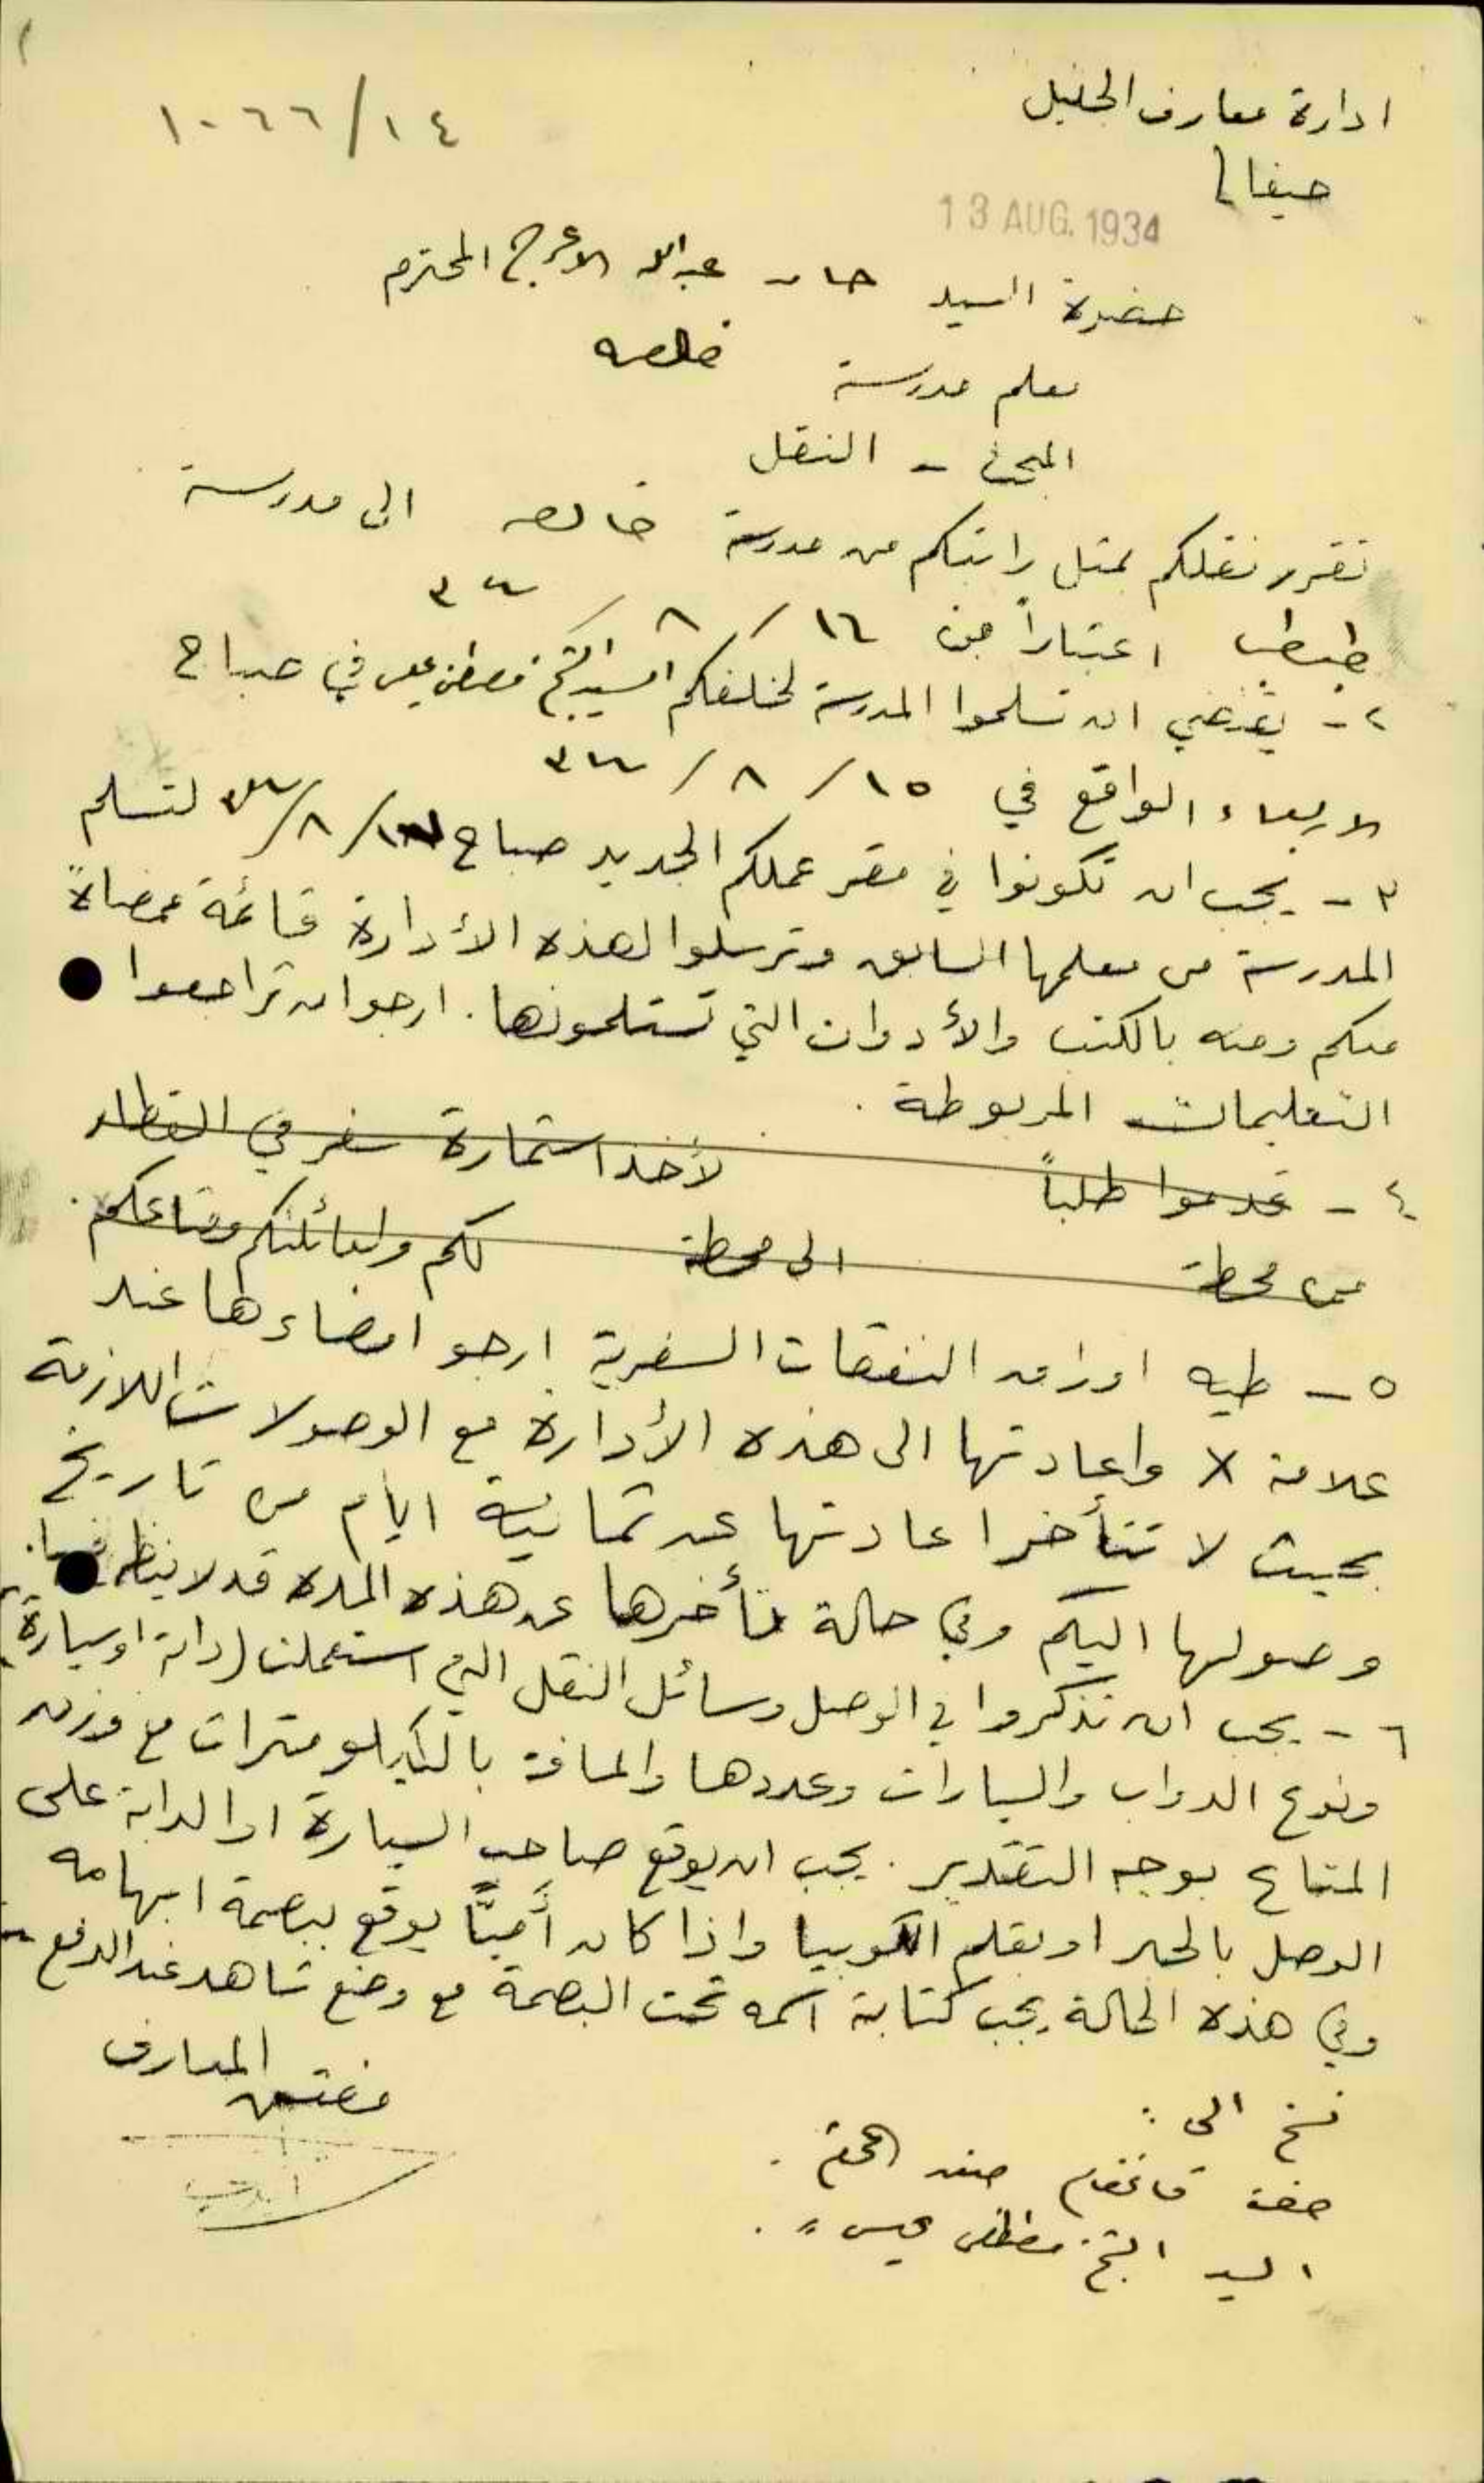 ادارة معارف الجليل
١٠٦٦/١٤
حيفا
13 AUG. 1934
حضرة السيد حامد عبدالله الاعرج المحترم
معلم مدرسة خالصه
المبحث - النقل
تقرر نقلكم بمثل راتبكم من مدرسة خالصه الى مدرسة
طيطبا اعتباراً من ١٦/٨/٣٤
٢- يقتضي ان تسلموا المدرسة لخلفكم السيد الشيخ مصطفى عيسى في صباح
الاربعاء الواقع في ١٥/٨/٣٤
٣- يجب ان تكونوا في مقر عملكم الجديد صباح ١٦/٨/٣٤ لتسلم
المدرسة من معلمها السابق وترسلوا لهذه الأدارة قائمة ممضاةً
منكم ومنه بالكتب والأدوات التي تستلمونها. ارجو ان تراجعوا
التعليمات المربوطة.
٤- قدموا طلباً لأخذ استمارة سفر في القطار
من محطة الى محطة لكم ولعائلتكم ومتاعكم.
٥- طيه اوراق النفقات السفرية ارجو امضاءها عند
علامة X واعادتها الى هذه الأدارة مع الوصولات اللازمة
بحيث لا تتأخر اعادتها عن ثمانية ايام من تاريخ
وصولها اليكم وفي حالة تأخرها عن هذه المدة قد لا ينظر فيها.
٦- يجب ان تذكروا في الوصل وسائل النقل التي استعملت (دابة او سيارة)
ونوع الدواب والسيارات وعددها والمسافة بالكيلو مترات مع وزن
المتاع بوجه التقدير. يجب ان يوقع صاحب السيارة او الدابة على
الوصل بالحبر او بقلم الكوبيا واذا كان أميًّا يوقع ببصمة ابهامه
وفي هذه الحالة يجب كتابة اسمه تحت البصمة مع وضع شاهد عند الدفع
مفتش المعارف
نسخ الى:
حضرة قائمقام صفد المحترم.
السيد الشيخ مصطفى عيسى ".